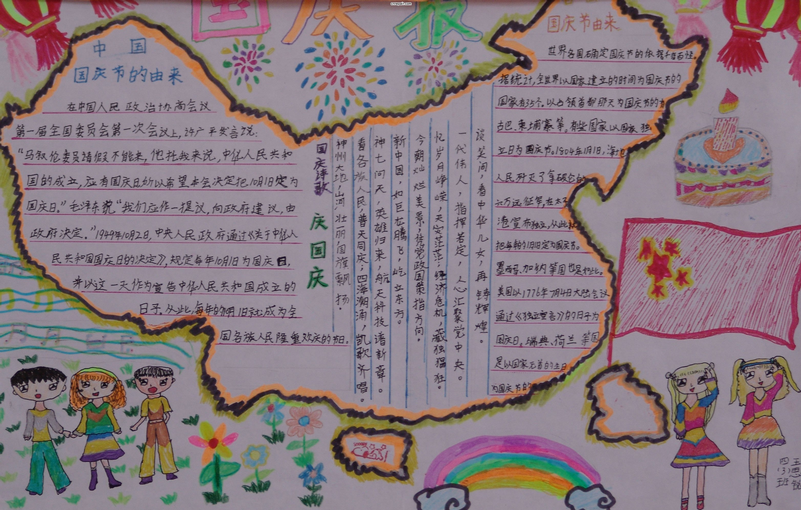 国庆报
中国
国庆节的由来
在中国人民政治协商会议
第一届全国委员会第一次会议上,许广平发言说:
“马叙伦委员请假不能来,他托我来说,中华人民共和
国的成立,应有国庆日所以希望本会决定把10月1日定为
国庆日。”毛泽东说“我们应作一提议,向政府建议,由
政府决定。”1949年10月2日,中央人民政府通过《关于中华人
民共和国国庆日的决定》,规定每年10月1日为国庆日,
并以这一天作为宣告中华人民共和国成立的
日子,从此,每年的10月1日就成为全
国各族人民隆重欢庆的节日。
庆国庆
神州大地,山河壮丽国旗飘扬。
看各族人民,普天同庆,四海潮涌,凯歌齐唱。
神七问天,英雄归来,航天科技谱新章。
新中国,如巨龙腾飞,屹立东方。
今朝灿烂美景,接党政国策指方向。
忆岁月峥嵘,天灾茫茫,经济危机,藏独猖狂。
一代伟人,指挥若定,人心汇聚党中央。
谈笑间,看中华儿女,再铸辉煌。
国庆节由来
世界各国确定国庆节的依据千奇百怪。
据统计,全世界以国家建立的时间为国庆节的
国家有35个。以占领首都那天为国庆节的有
古巴、柬埔寨等,有些国家以国家独
立日为国庆节。1804年1月1日,海地
人民歼灭了拿破仑的
墨西哥、加纳等国也是如此。
美国以1776年7月4日大陆会议
通过《独立宣言》的7月4日为
国庆日。瑞典、荷兰等国
是以国家元首的生日
为国庆节的
四(3)班